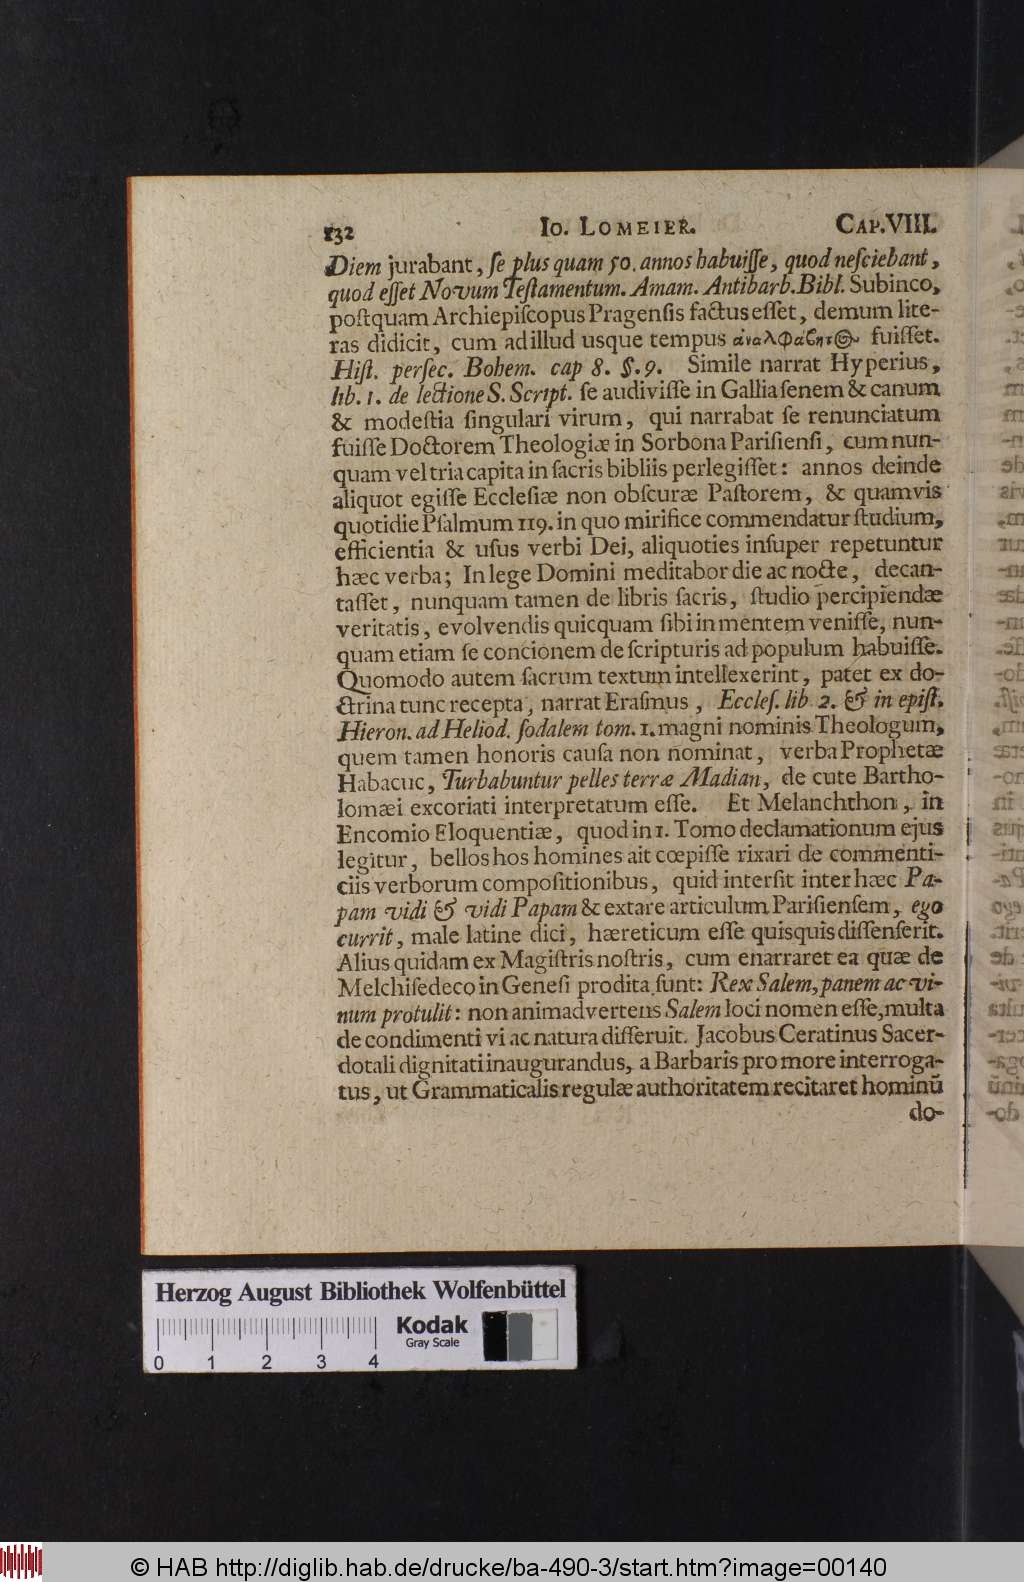 132 Io. Lomeier. Cap. VIII.
Diem jurabant, ſe plus quam 50. annos habuiſſe, quod neſciebant,
quod eſſet Novum Teſtamentum. Amam. Antibarb. Bibl. Subinco,
poſtquam Archiepiſcopus Pragenſis factus eſſet, demum lite-
ras didicit, cum ad illud usque tempus ἀναλφάβητος fuiſſet.
Hiſt. perſec. Bohem. cap 8. §. 9. Simile narrat Hyperius,
lib. 1. de lectione S. Script. ſe audiviſſe in Gallia ſenem & canum
& modeſtia ſingulari virum, qui narrabat ſe renunciatum
fuiſſe Doctorem Theologiæ in Sorbona Pariſienſi, cum nun-
quam vel tria capita in ſacris bibliis perlegiſſet: annos deinde
aliquot egiſſe Eccleſiæ non obſcuræ Paſtorem, & quamvis
quotidie Pſalmum 119. in quo mirifice commendatur ſtudium,
efficientia & uſus verbi Dei, aliquoties inſuper repetuntur
hæc verba; In lege Domini meditabor die ac nocte, decan-
taſſet, nunquam tamen de libris ſacris, ſtudio percipiendæ
veritatis, evolvendis quicquam ſibi in mentem veniſſe, nun-
quam etiam ſe concionem de ſcripturis ad populum habuiſſe.
Quomodo autem ſacrum textum intellexerint, patet ex do-
ctrina tunc recepta, narrat Eraſmus, Eccleſ. lib 2. & in epiſt.
Hieron. ad Heliod. ſodalem tom. 1. magni nominis Theologum,
quem tamen honoris cauſa non nominat, verba Prophetæ
Habacuc, Turbabuntur pelles terræ Madian, de cute Bartho-
lomæi excoriati interpretatum eſſe. Et Melanchthon, in
Encomio Eloquentiæ, quod in 1. Tomo declamationum ejus
legitur, bellos hos homines ait cœpiſſe rixari de commenti-
ciis verborum compoſitionibus, quid interſit inter hæc Pa-
pam vidi & vidi Papam & extare articulum Pariſienſem, ego
currit, male latine dici, hæreticum eſſe quisquis diſſenſerit.
Alius quidam ex Magiſtris noſtris, cum enarraret ea quæ de
Melchiſedeco in Geneſi prodita ſunt: Rex Salem, panem ac vi-
num protulit: non animadvertens Salem loci nomen eſſe, multa
de condimenti vi ac natura differuit. Jacobus Ceratinus Sacer-
dotali dignitati inaugurandus, a Barbaris pro more interroga-
tus, ut Grammaticalis regulæ authoritatem recitaret hominū
do-
Herzog August Bibliothek Wolfenbüttel
Kodak
Gray Scale
0 1 2 3 4
© HAB http://diglib.hab.de/drucke/ba-490-3/start.htm?image=00140